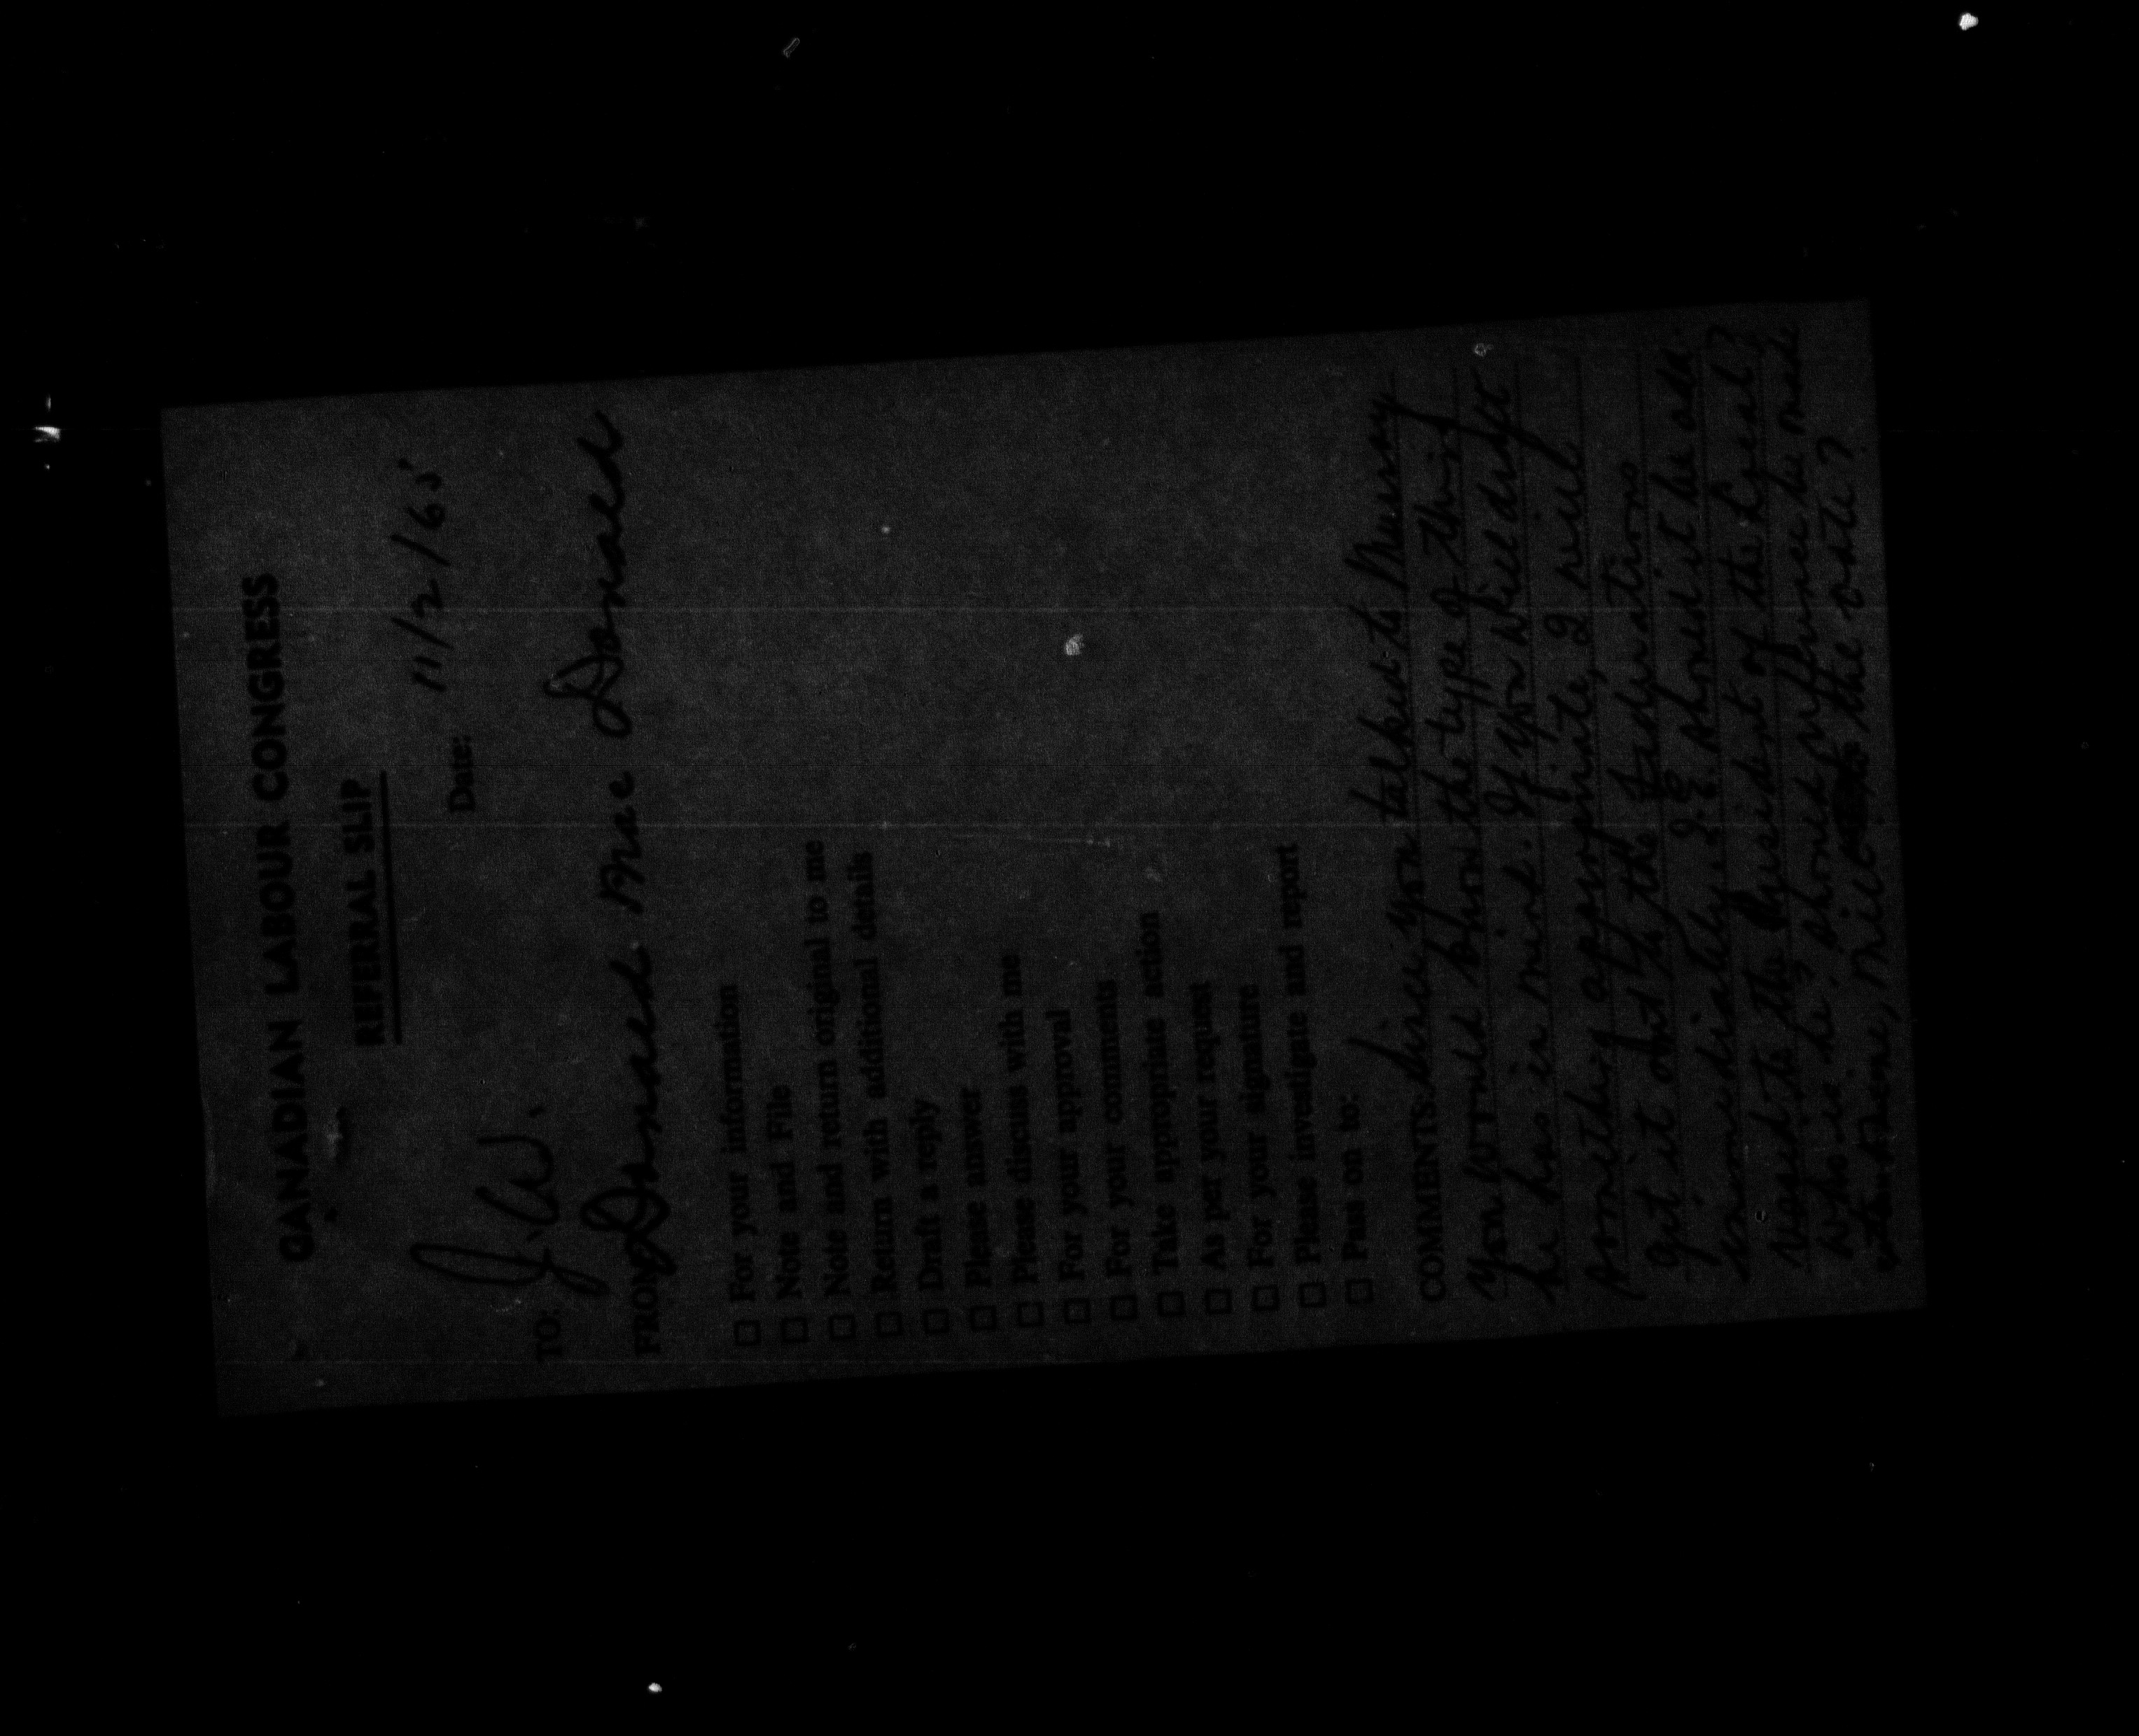 CANADIAN LABOUR CONGRESS
REFERRAL SLIP
Date: 11/2/65
TO: J.W.
FROM Donald Mac Donald
☐ For your information
☐ Note and File
☐ Note and return original to me
☐ Return with additional details
☐ Draft a reply
☐ Please answer
☐ Please discuss with me
☐ For your approval
☐ For your comments
☐ Take appropriate action
☐ As per your request
☐ For your signature
☐ Please investigate and report
☐ Pass on to:
COMMENTS: Since you talked to Murray
you would know the type of thing
he has in mind. If you will draft
something appropriate, I will
get it out to the Federations
immediately. I.E. should it be add-
ressed to the President of the
who is he? should reference be made
the date?